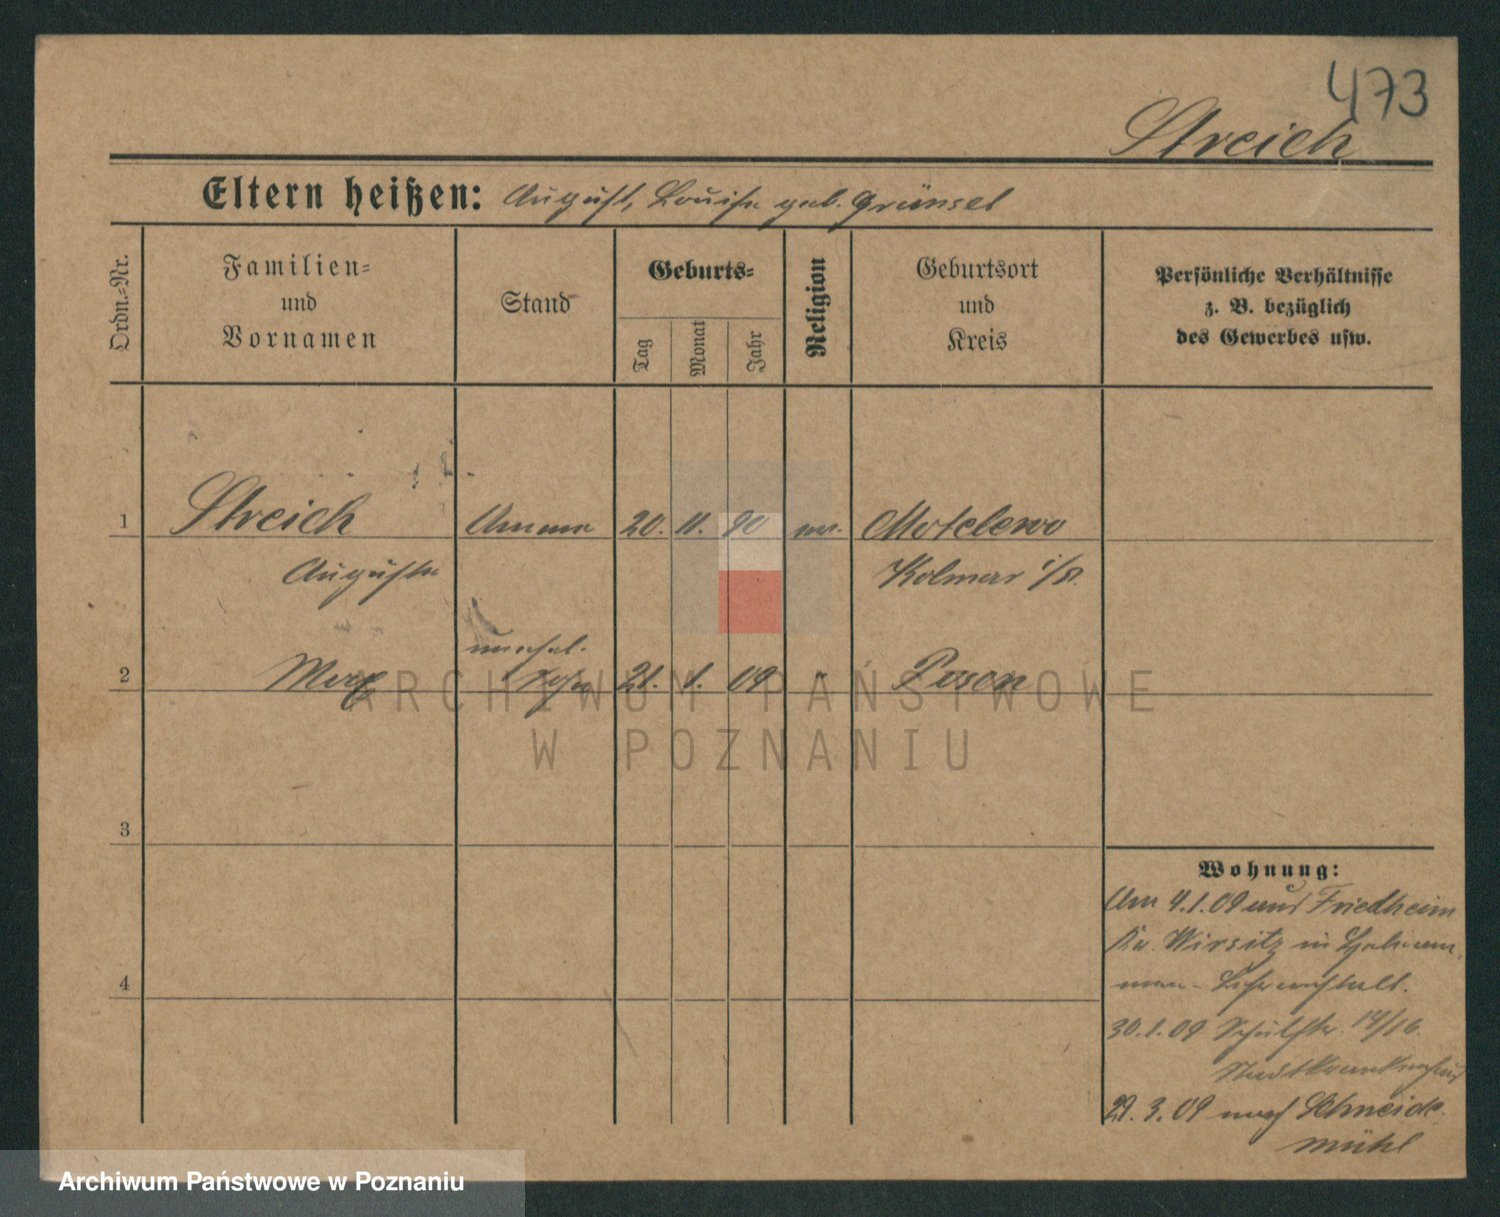 473
Streich
Eltern heißen: August, Louise geb. Grünsel
Ordn.-Nr.
Familien-
und
Vornamen
Stand
Geburts-
Tag
Monat
Jahr
Religion
Geburtsort
und
Kreis
Persönliche Verhältnisse
z. B. bezüglich
des Gewerbes usw.
1 Streich Amme 20. 11. 90 ev. Motelewo
Auguste Kolmar i/P.
unehel.
2 Max Sohn 21. 1. 09 " Posen
3
4
Wohnung:
Am 4.1.09 aus Friedheim
Kr. Wirsitz in Hebam-
men-Lehranstalt.
30.1.09 Schulstr. 14/16
Stadtkrankenhaus
29.3.09 nach Schneide-
mühl
ARCHIWUM PAŃSTWOWE
W POZNANIU
Archiwum Państwowe w Poznaniu